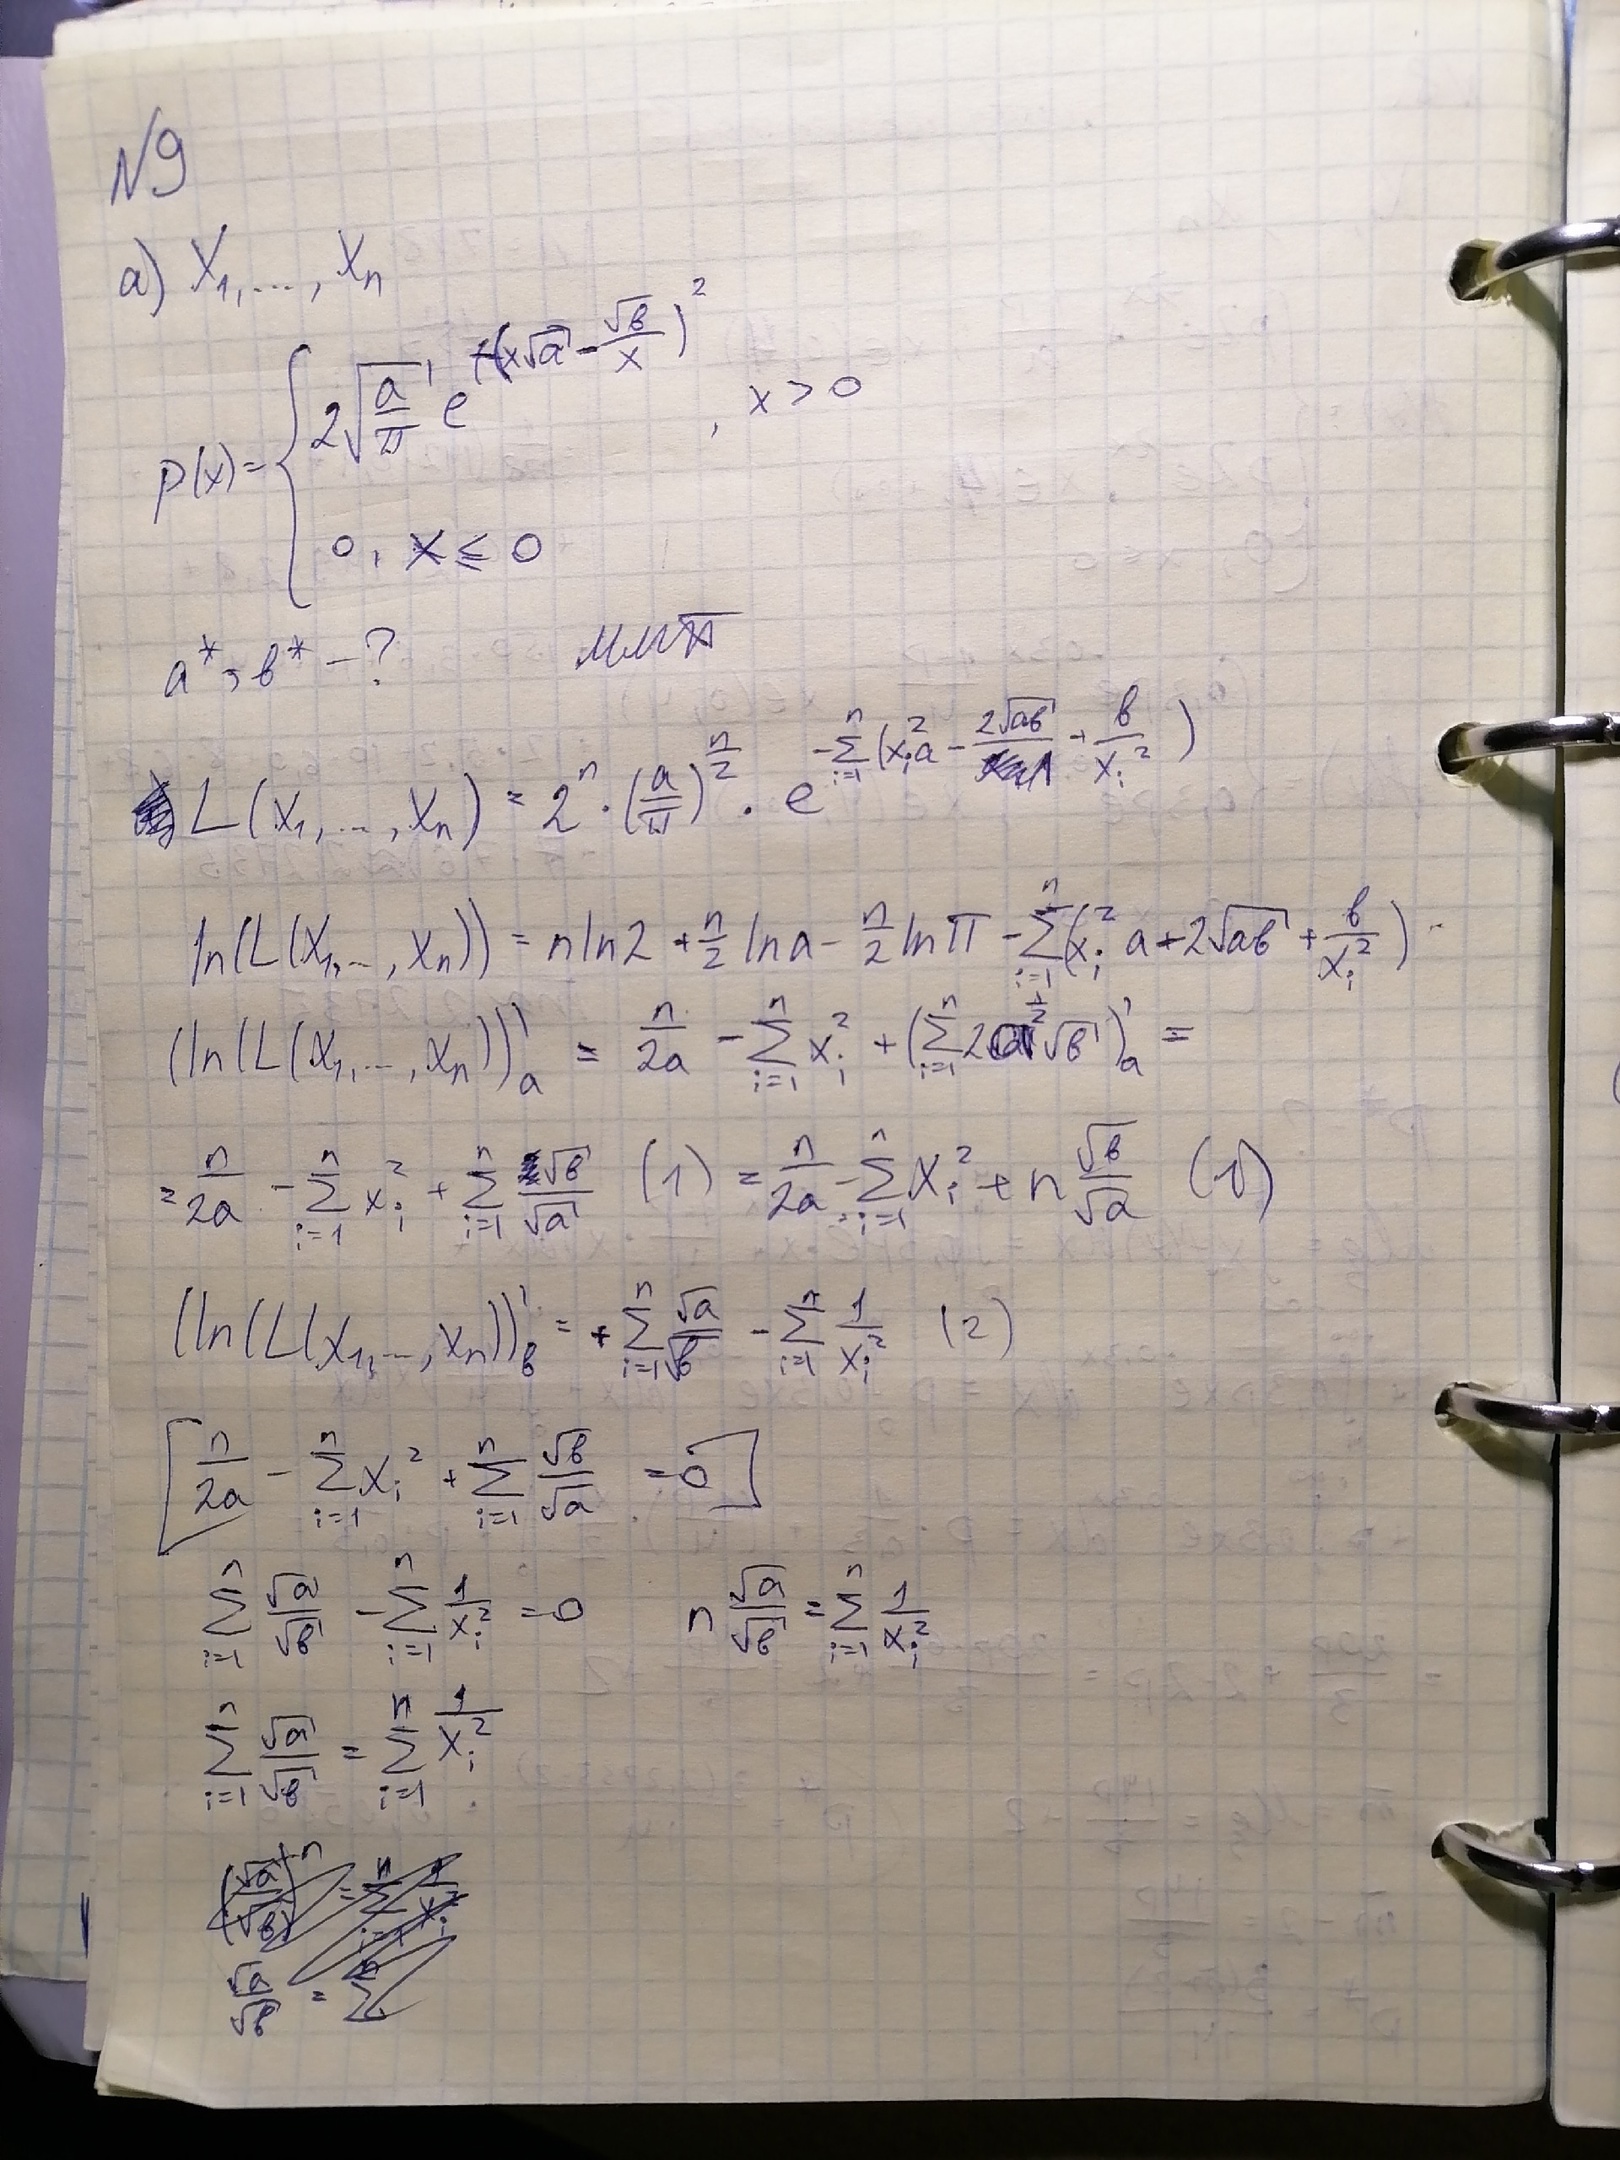 N9
а) X₁, ..., Xₙ
p(x) = { 2√(a/π) e^(-(x√a - √b/x)²), x > 0
0, x ≤ 0
a*, b* - ?
L(x₁, ..., xₙ) = 2ⁿ · (a/π)^(n/2) · e^(-∑_{i=1}^{n} (xᵢ²a - 2√ab + b/xᵢ²))
ln(L(x₁, .., xₙ)) = n ln2 + n/2 ln a - n/2 ln π - ∑_{i=1}^{n} (xᵢ² a + 2√ab + b/xᵢ²)
(ln(L(x₁, ..., xₙ))'ₐ = n/2a - ∑_{i=1}^{n} xᵢ² + (∑_{i=1}^{n} 2a^(1/2) √b)'ₐ =
= n/2a - ∑_{i=1}^{n} xᵢ² + ∑_{i=1}^{n} √b/√a (1) = n/2a - ∑_{i=1}^{n} xᵢ² + n √b/√a (1)
(ln(L(x₁, ..., xₙ))'_b = + ∑_{i=1}^{n} √a/√b - ∑_{i=1}^{n} 1/xᵢ² (2)
[ n/2a - ∑_{i=1}^{n} xᵢ² + ∑_{i=1}^{n} √b/√a = 0 ]
∑_{i=1}^{n} √a/√b - ∑_{i=1}^{n} 1/xᵢ² = 0 n √a/√b = ∑_{i=1}^{n} 1/xᵢ²
∑_{i=1}^{n} √a/√b = ∑_{i=1}^{n} 1/xᵢ²
√a/√b = ∑